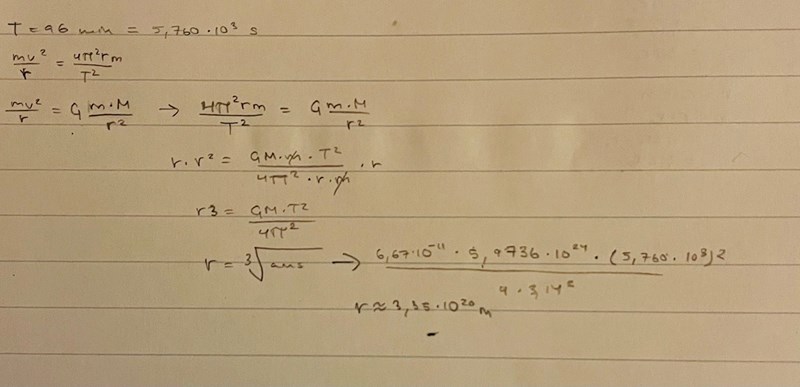 T = 96 min = 5,760·10³ s
mv²/r = 4π²rm/T²
mv²/r = G m·M/r² → 4π²rm/T² = G m·M/r²
r·r² = GM·m·T²/4π²·r·m ·r
r3 = GM·T²/4π²
r = ³√ans → 6,67·10⁻¹¹ · 5,9736·10²⁴ · (5,760·10³)2 / 4·3,14²
r ≈ 3,35·10²⁰ m